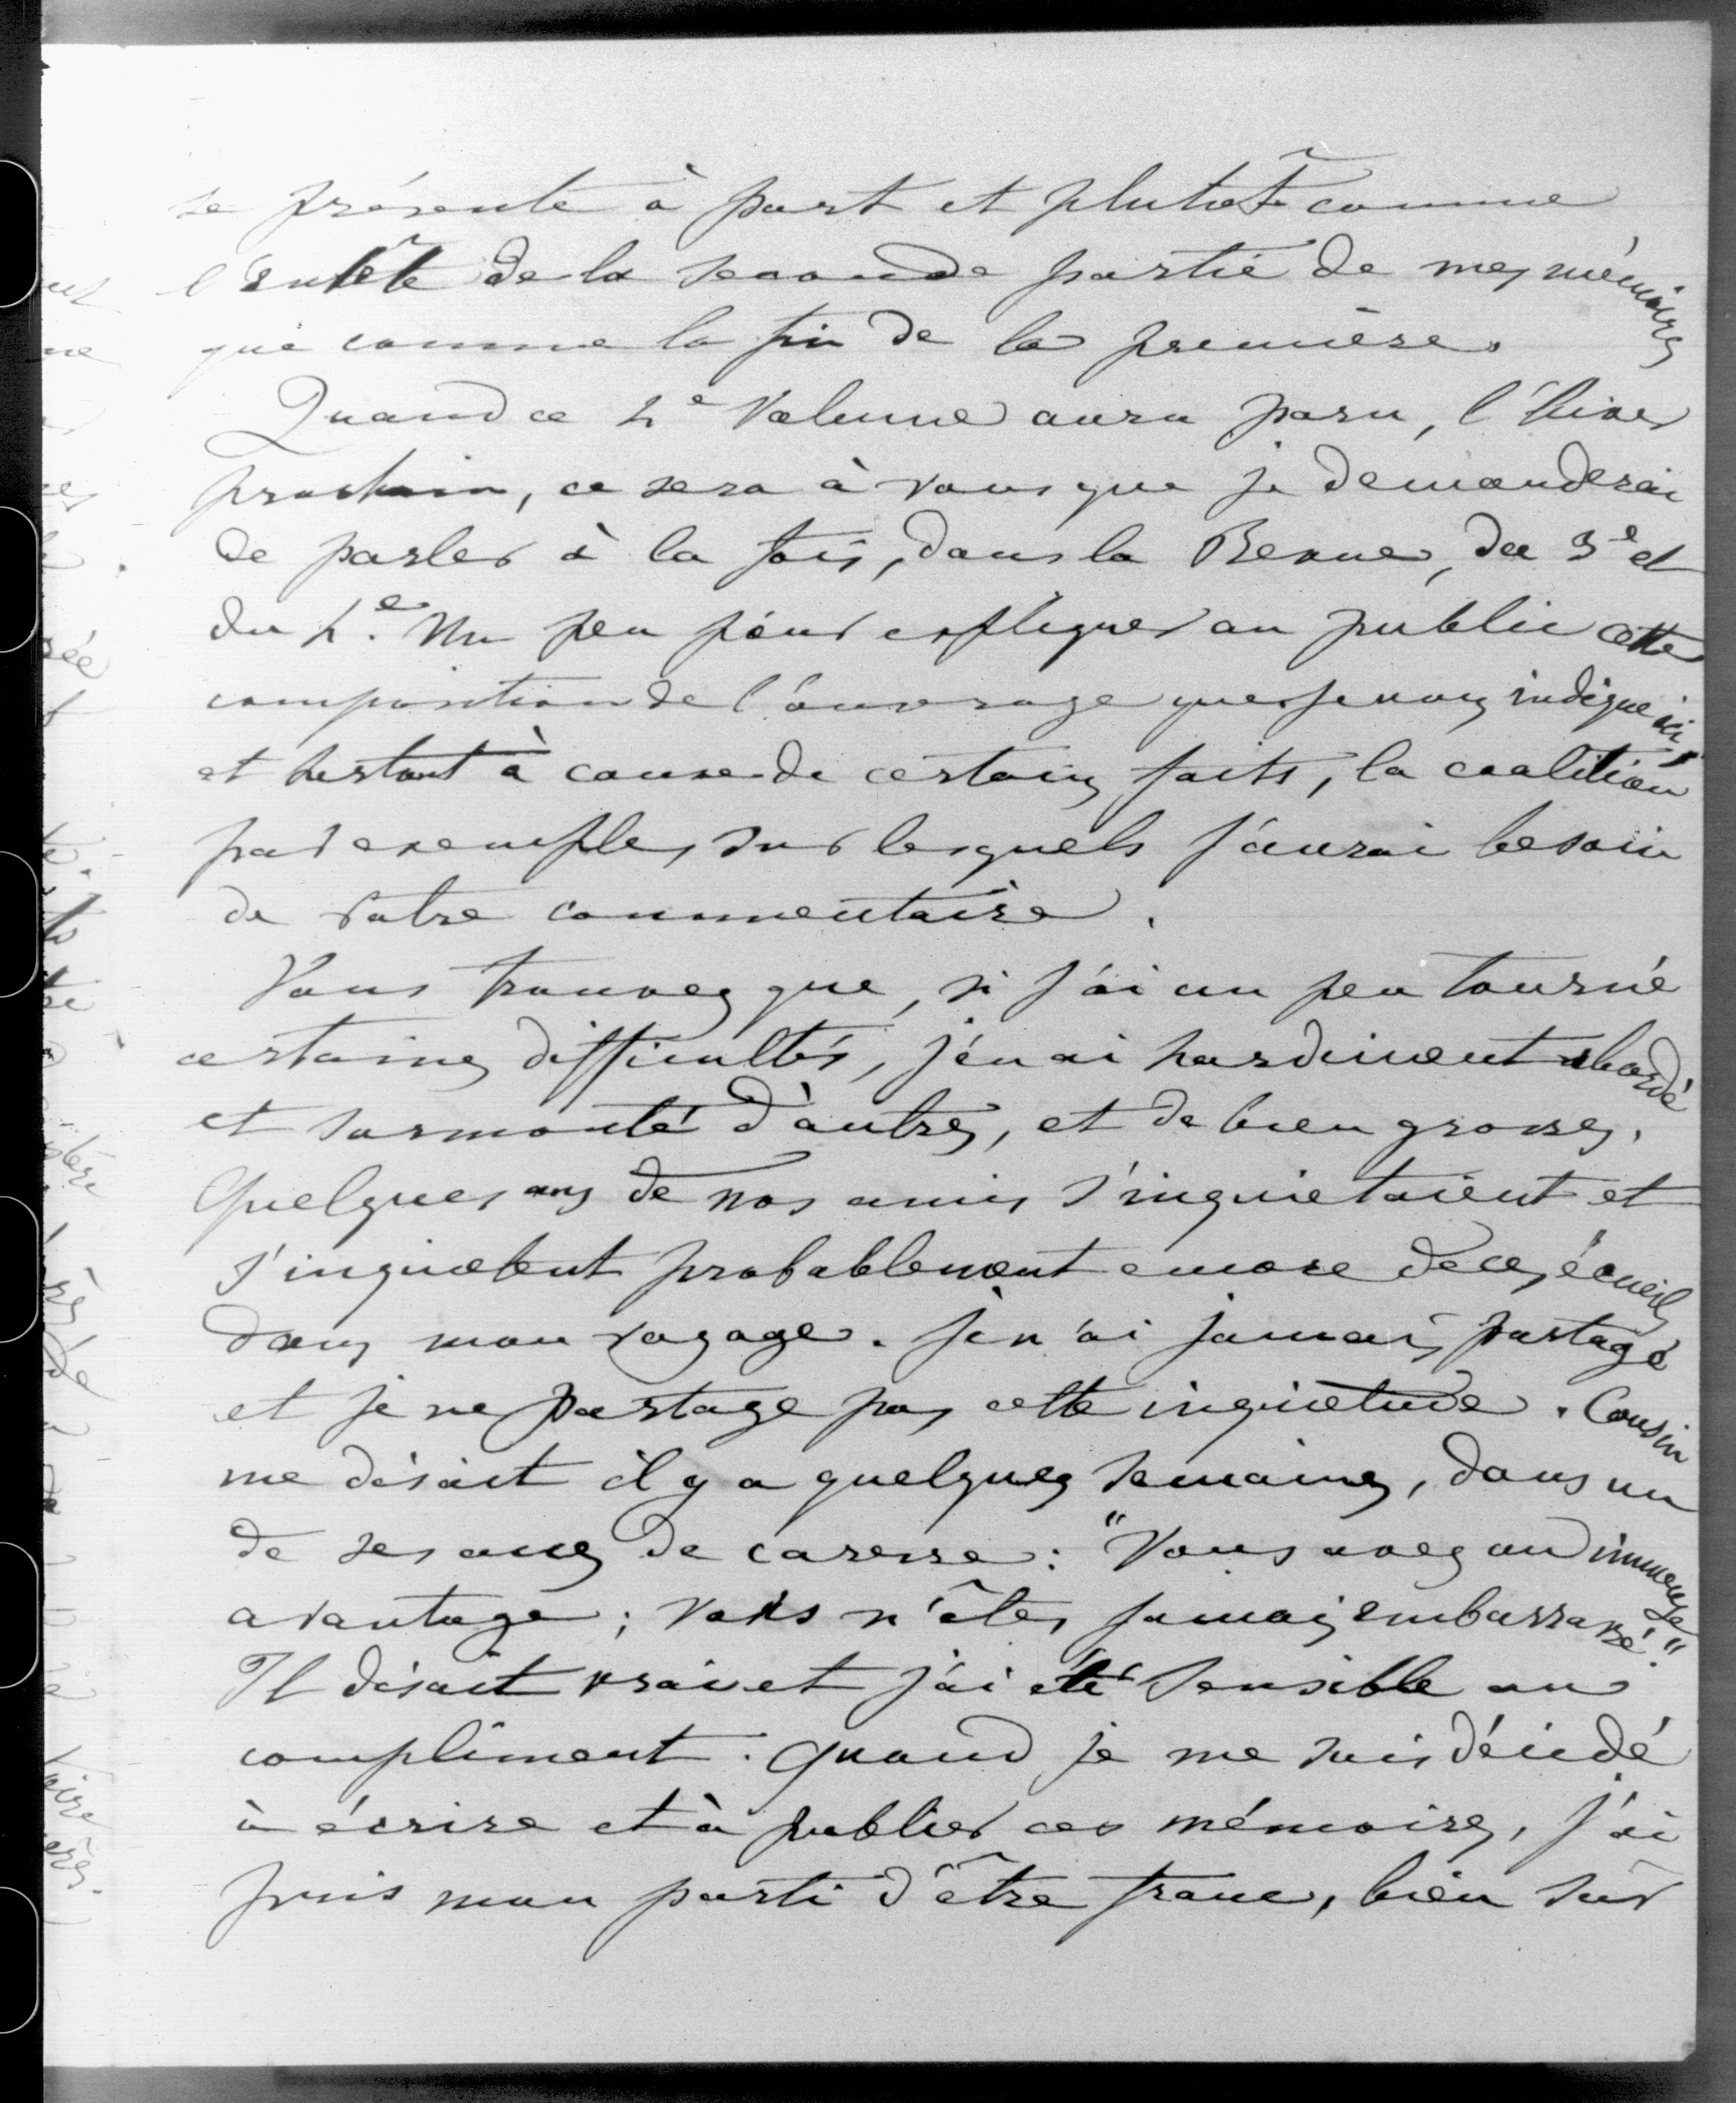 se présente à part et plutôt comme
l'entête de la seconde partie de mes mémoires
que comme la fin de la première.
Quand ce 4e volume aura paru, l'hiver
prochain, ce sera à vous que je demanderai
de parler à la fois, dans la Revue, du 3e et
du 4e. Un peu pour expliquer au public cette
composition de l'ouvrage que je vous indique ici,
et surtout à cause de certains faits, la coalition
par exemple, sur lesquels j'aurai besoin
de votre commentaire.
Vous trouvez que, si j'ai un peu tourné
certaines difficultés, j'en ai hardiment abordé
et surmonté d'autres, et de bien grosses.
Quelques uns de nos amis s'inquiétaient et
s'inquiètent probablement encore de ces écueils
dans mon voyage. Je n'ai jamais partagé
et je ne partage pas cette inquiétude. Cousin
me disait il y a quelques semaines, dans un
de ses accès de caresse : "Vous avez un immense
avantage ; vous n'êtes jamais embarrassé."
Il disait vrai et j'ai été sensible au
compliment. Quand je me suis décidé
à écrire et à publier ces mémoires, j'ai
pris mon parti d'être franc, bien sûr